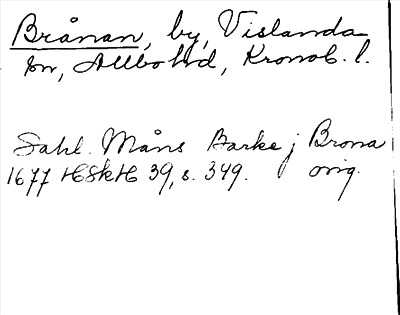 Brånan, by, Vislanda
sn, Allbo hd, Kronob. l.
Sahl. Måns Barke j Brona
1677 HSkH 39, s. 349. orig.